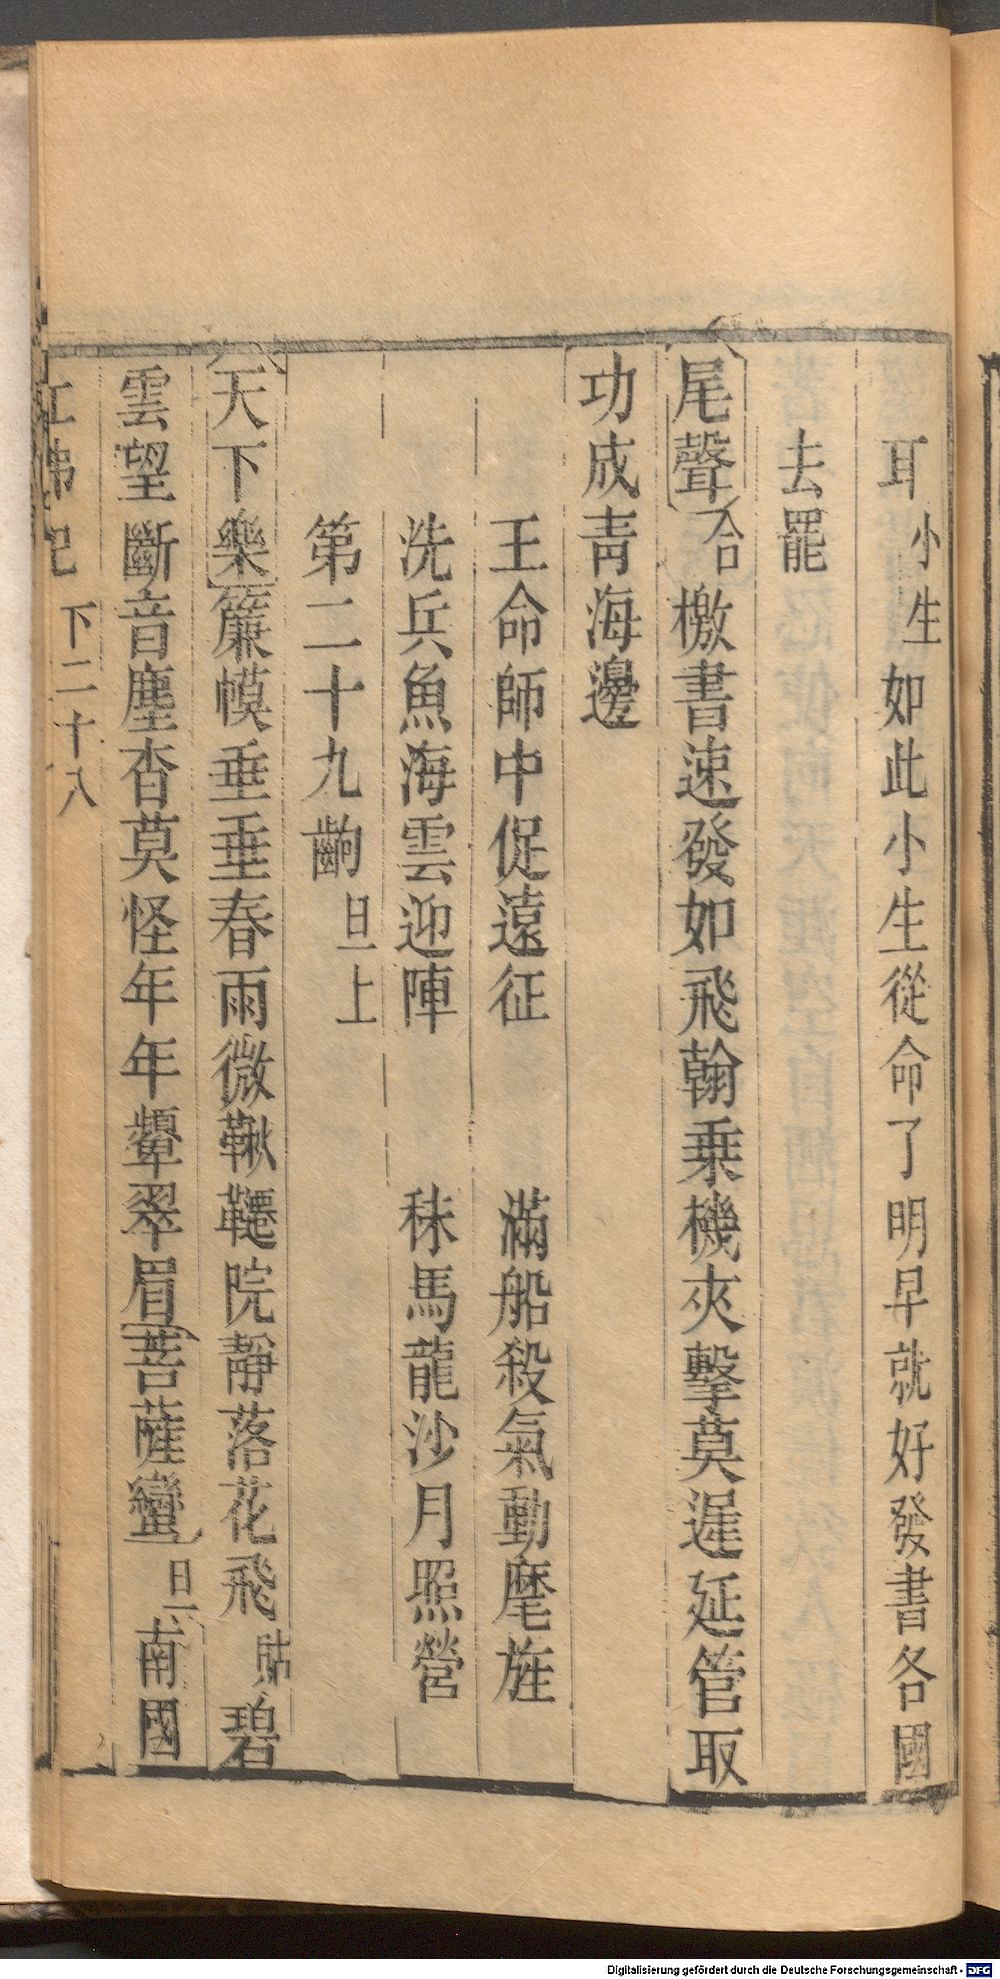 耳小生如此小生從命了明早就好發書各國
去罷
尾聲合檄書速發如飛翰乗機夾擊莫遲延管取
功成青海邊
王命師中促遠征　滿船殺氣動麾旌
洗兵魚海雲迎陣　秣馬龍沙月照營
第二十九齣旦上
天下樂簾幙垂垂春雨微鞦韆院靜落花飛貼碧
雲望斷音塵杳莫怪年年顰翠眉菩薩蠻旦南國
紅拂記 下二十八
Digitalisierung gefördert durch die Deutsche Forschungsgemeinschaft - DFG